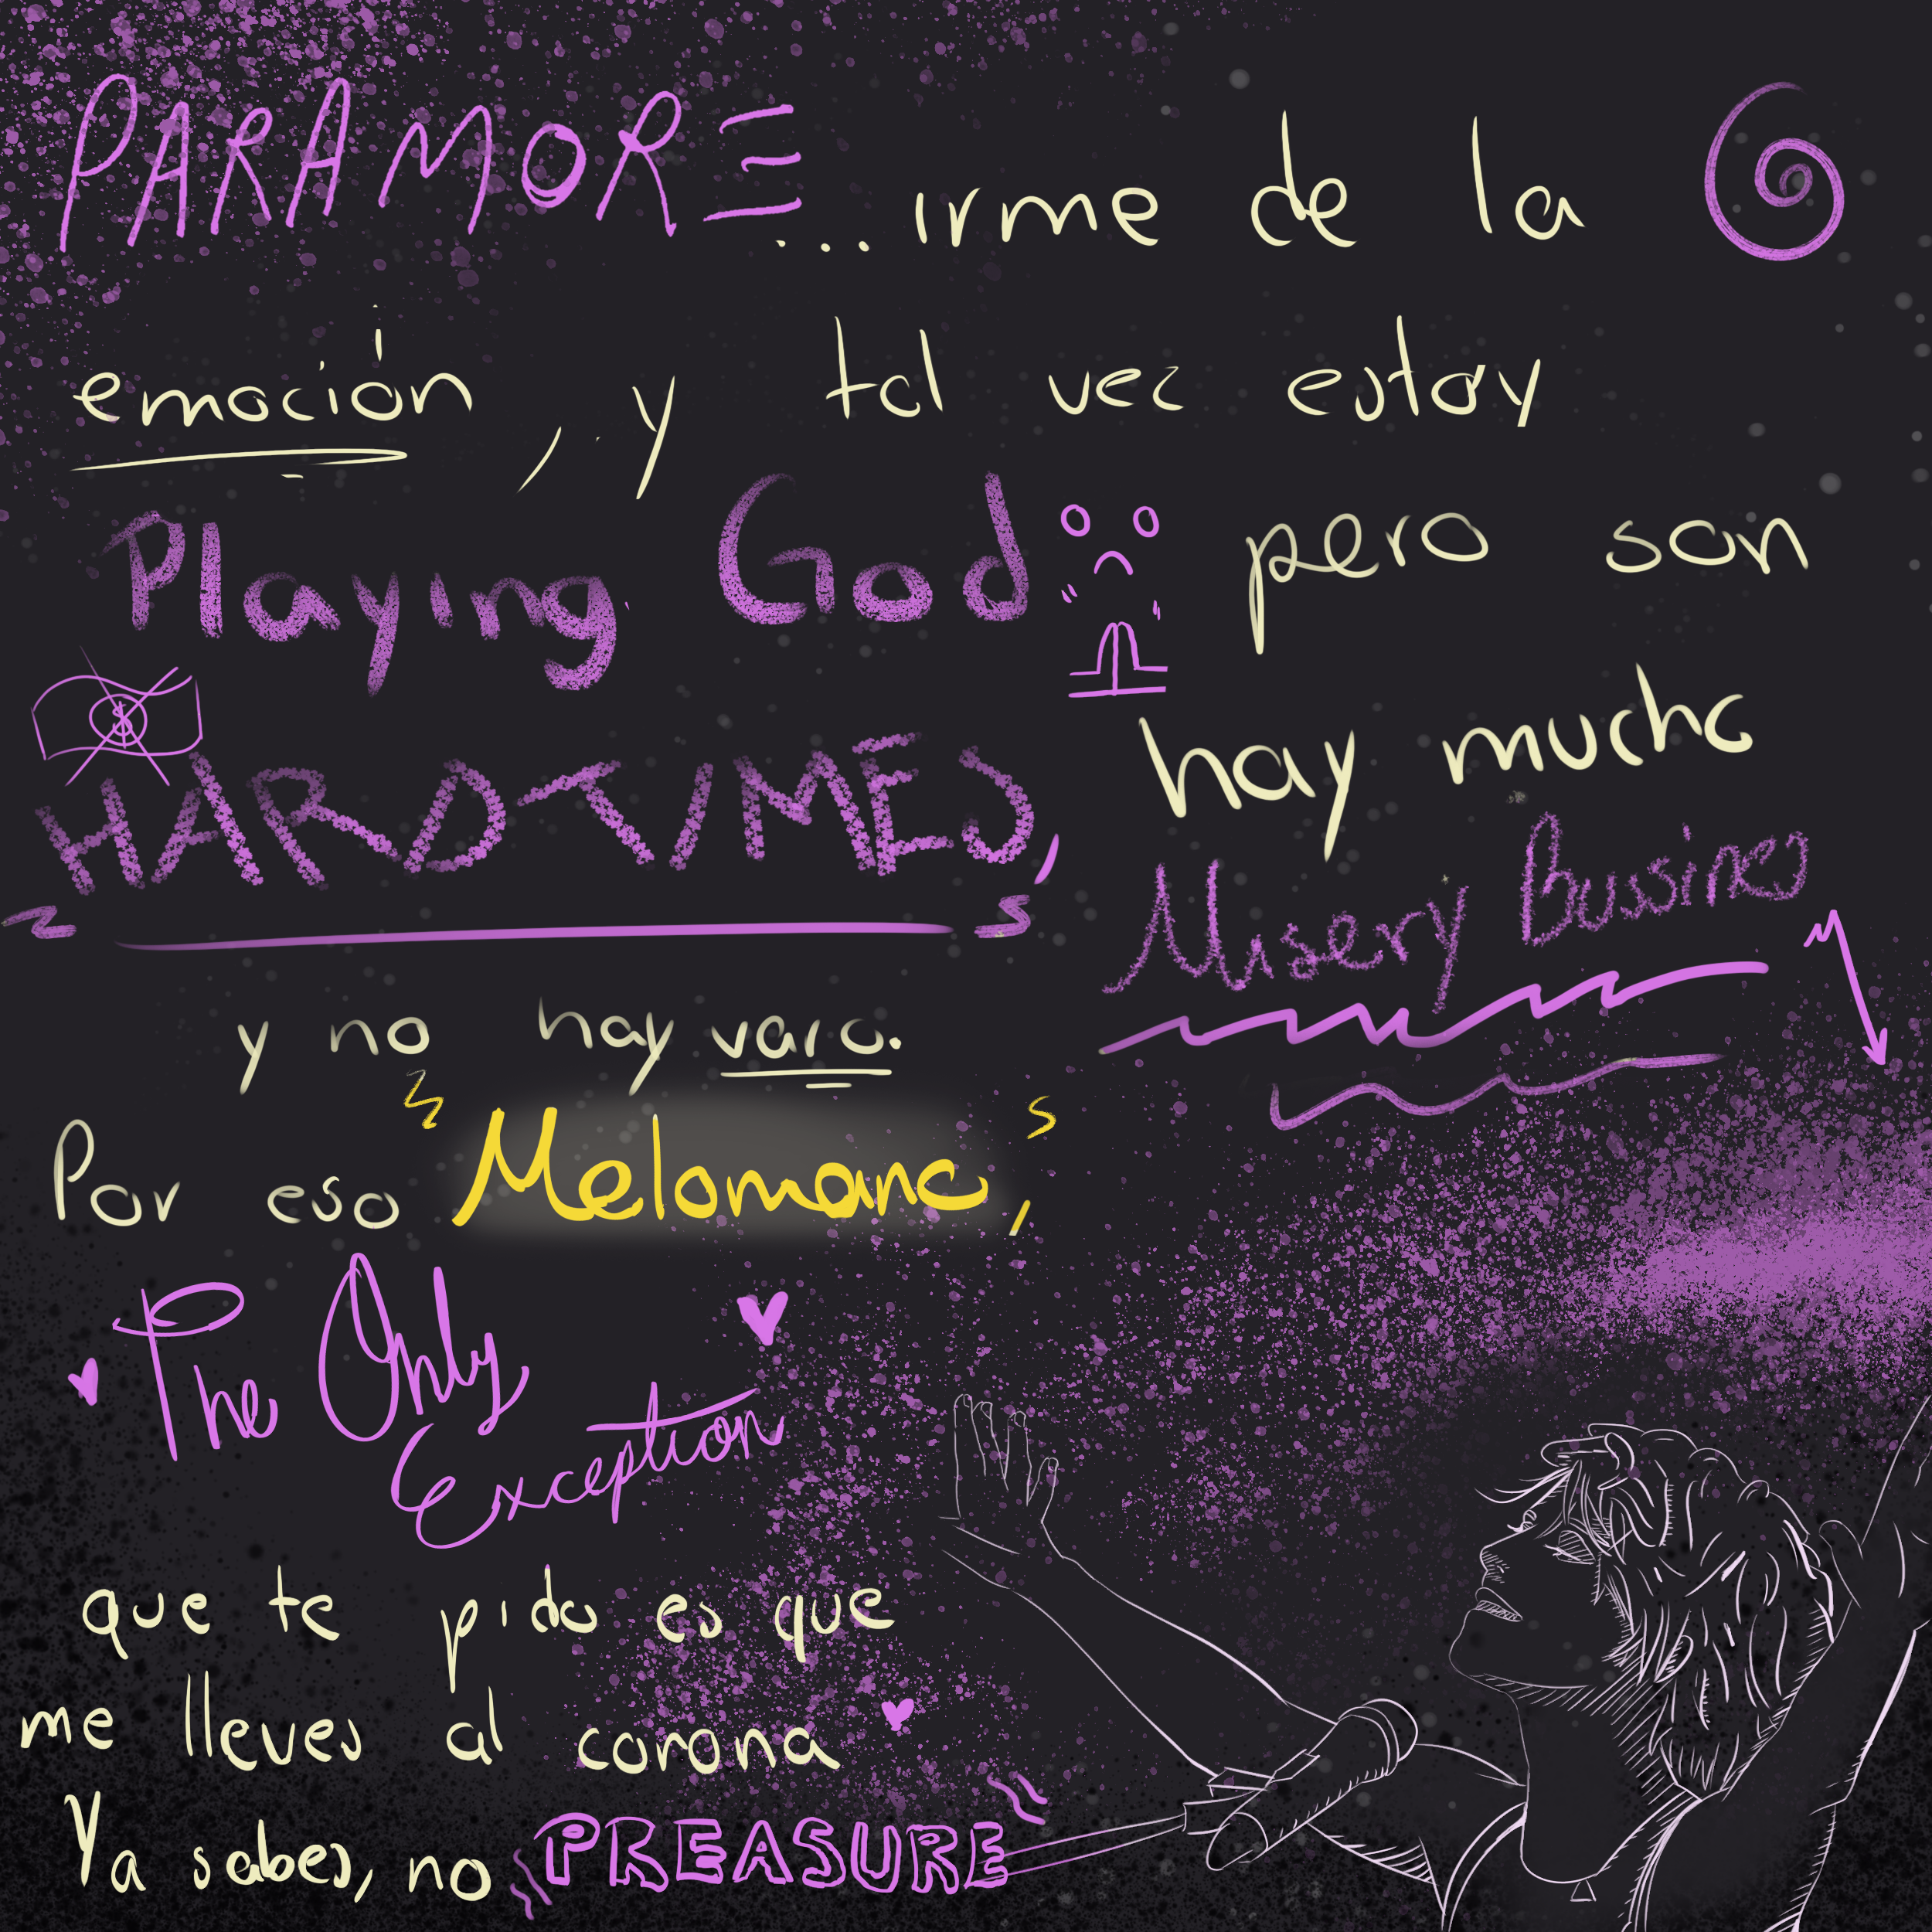 PARAMORE ...irme de la
emoción, y tal vez estoy
Playing God pero son
HARD TIMES, hay mucho
Misery Bussines
y no hay varo.
Por eso Melomano,
The Only
Exception
que te pido es que
me lleves al corona
Ya sabes, no PREASURE